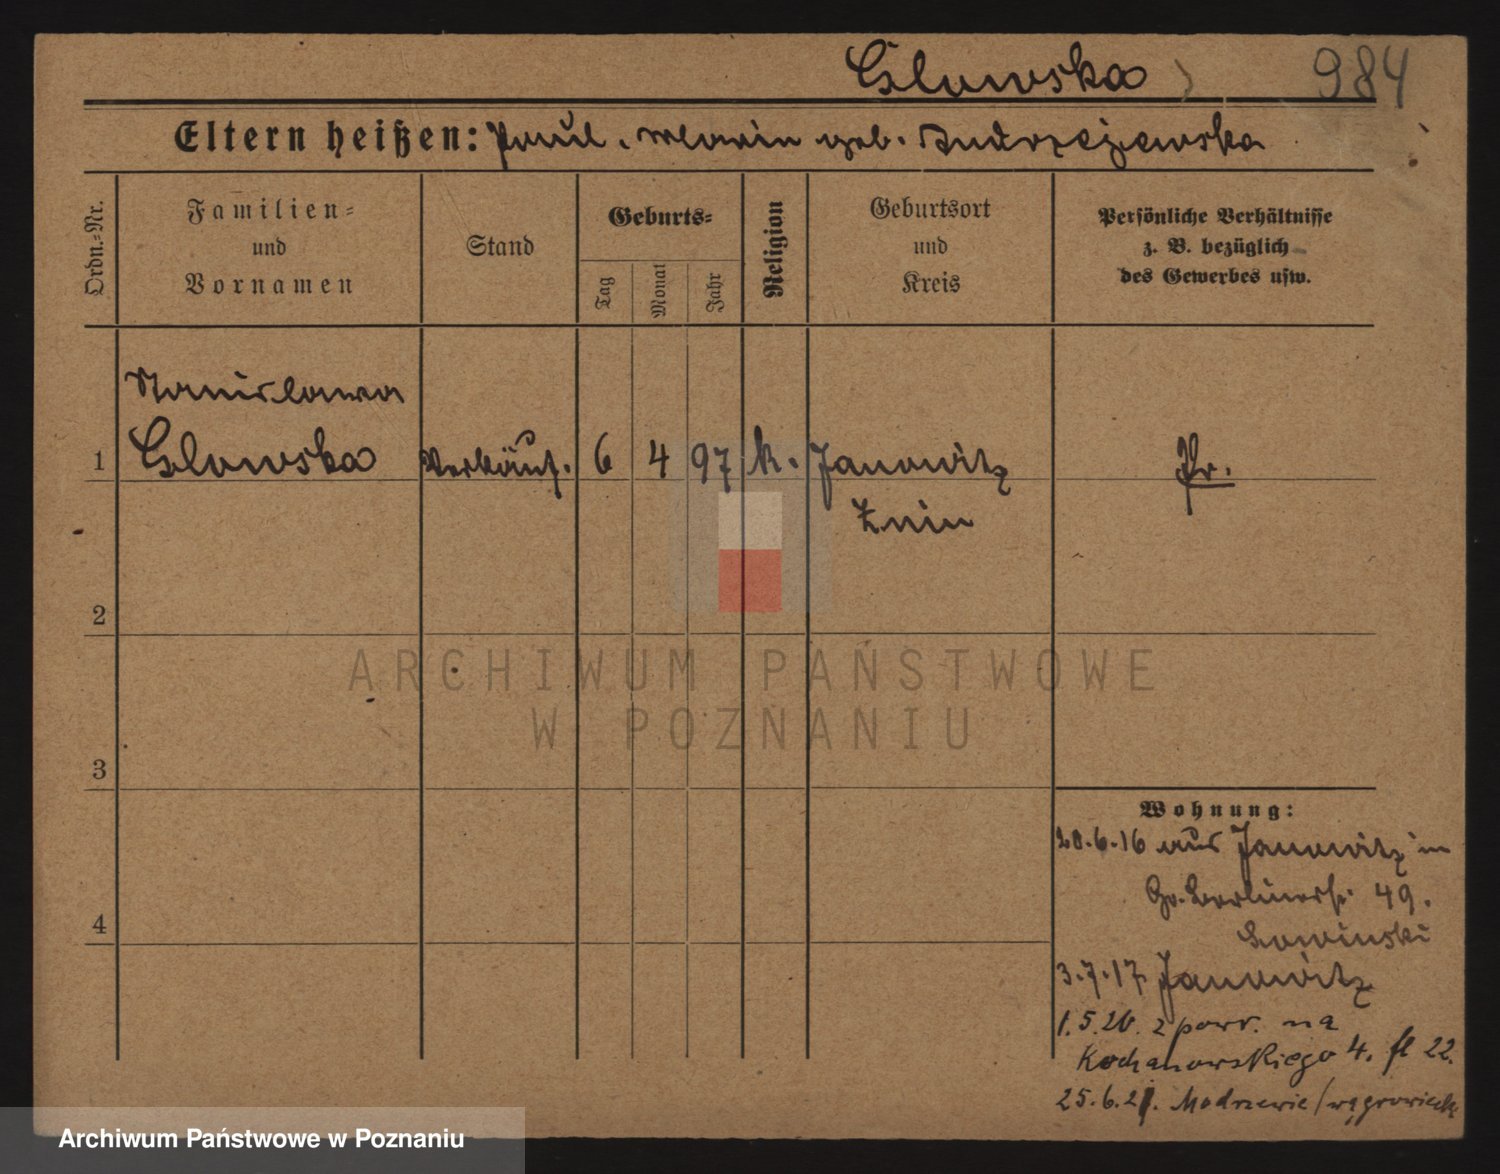 Glowska 984
Eltern heißen: Paul. Marie geb. Andrzejewska
Ordn.-Nr.
Familien-
und
Vornamen
Stand
Geburts-
Tag
Monat
Jahr
Religion
Geburtsort
und
Kreis
Persönliche Verhältnisse
z. B. bezüglich
des Gewerbes usw.
Stanislawa
1 Glowska Verkäuf. 6 4 97 k. Janowitz Pr.
Znin
2
3
4
Wohnung:
20.6.16 aus Janowitz in
Gr. Berlinerstr. 49.
3.7.17 Janowitz
1.5.20. z powr. na
Kochanowskiego 4. fl 22.
25.6.21. Modrzewie / wągrowieck
ARCHIWUM PAŃSTWOWE
W POZNANIU
Archiwum Państwowe w Poznaniu